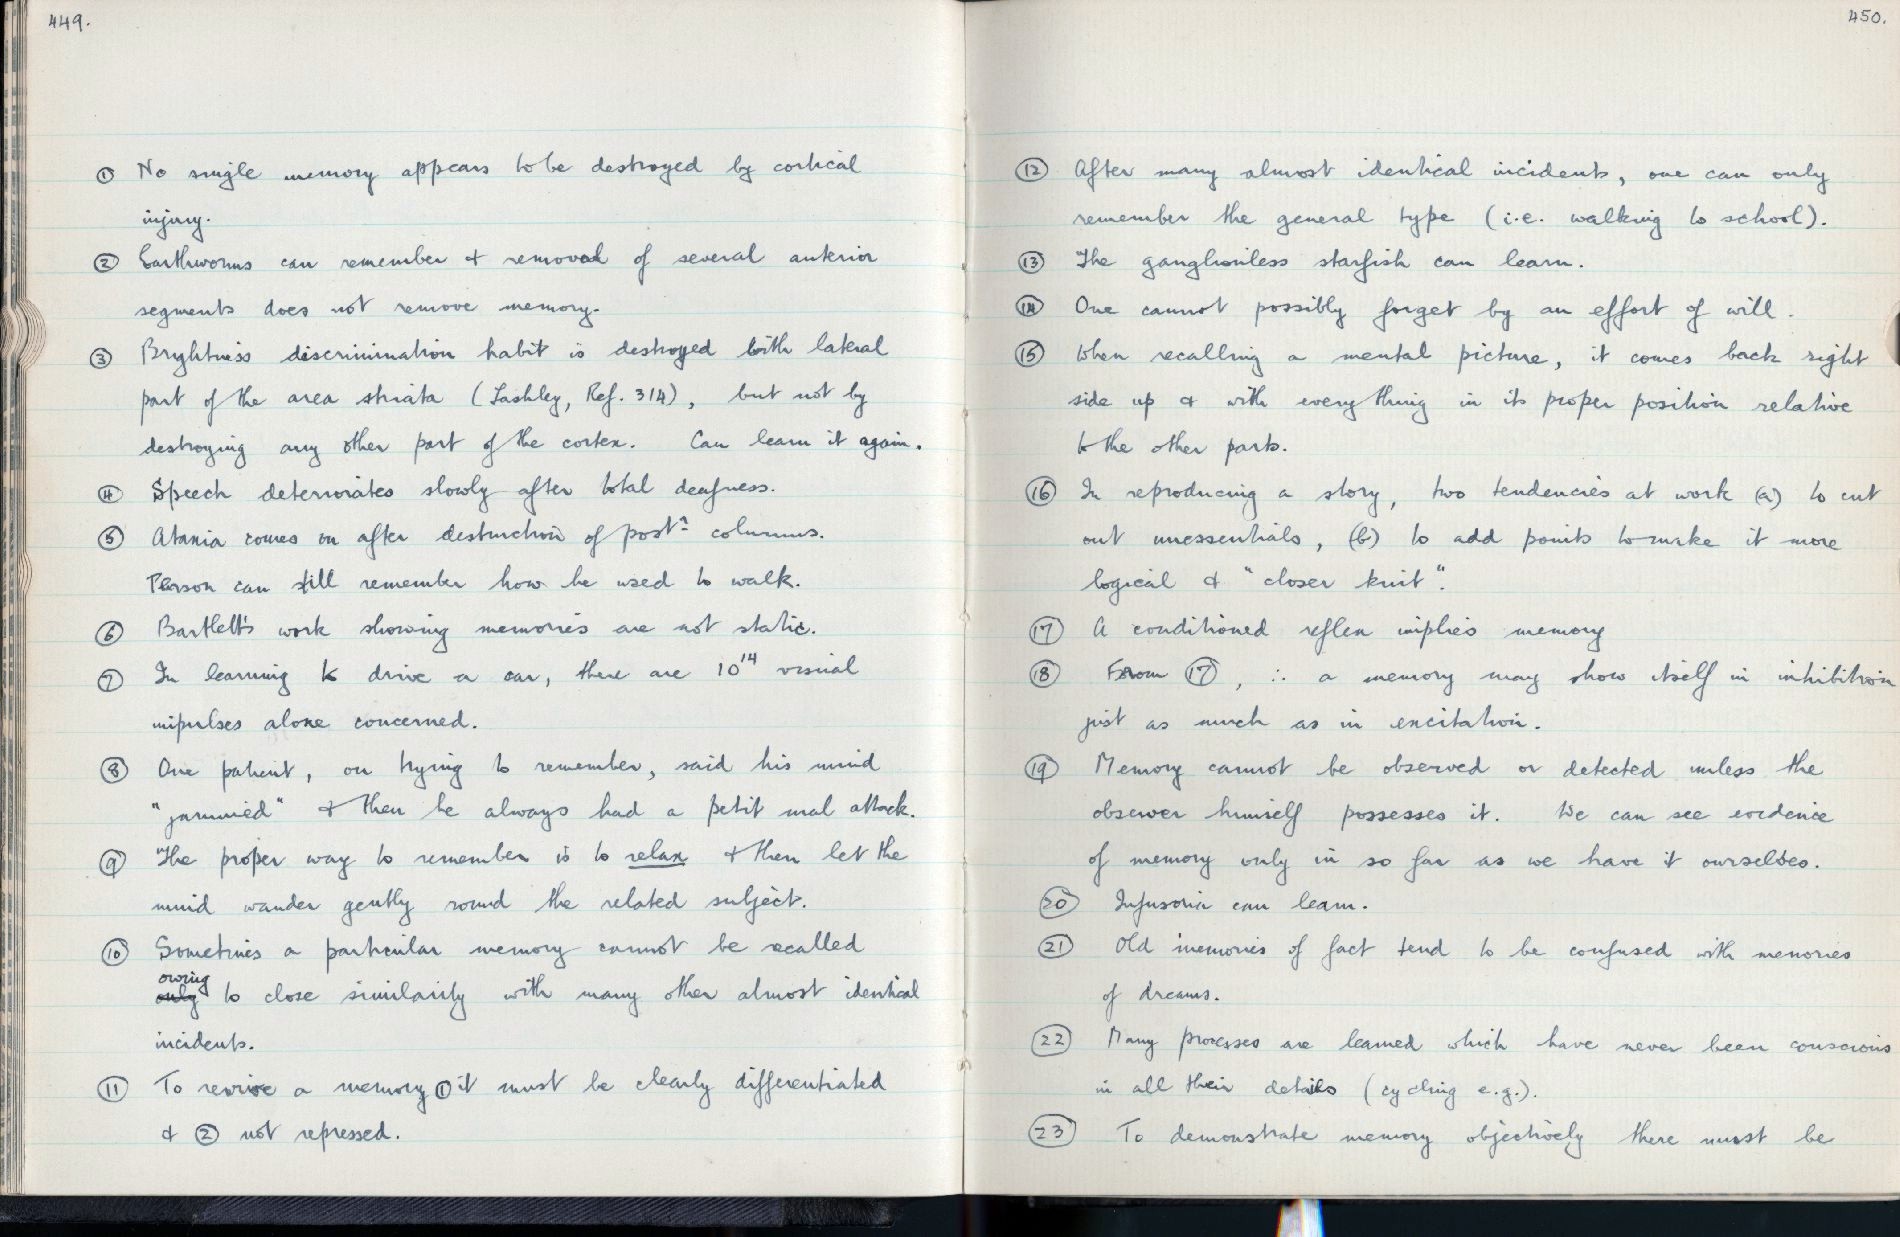 449.
① No single memory appears to be destroyed by cortical
injury.
② Earthworms can remember & removal of several anterior
segments does not remove memory.
③ Brightness discrimination habit is destroyed with lateral
part of the area striata (Lashley, Ref. 314), but not by
destroying any other part of the cortex. Can learn it again.
④ Speech deteriorates slowly after total deafness.
⑤ Ataxia comes on after destruction of postr columns.
Person can still remember how he used to walk.
⑥ Bartlett's work showing memories are not static.
⑦ In learning to drive a car, there are 10^14 visual
impulses alone concerned.
⑧ One patient, on trying to remember, said his mind
"jammed" & then he always had a petit mal attack.
⑨ The proper way to remember is to relax & then let the
mind wander gently round the related subject.
⑩ Sometimes a particular memory cannot be recalled
owing
only to close similarity with many other almost identical
incidents.
⑪ To revive a memory ① it must be clearly differentiated
& ② not repressed.
450.
⑫ After many almost identical incidents, one can only
remember the general type (i.e. walking to school).
⑬ The ganglionless starfish can learn.
⑭ One cannot possibly forget by an effort of will.
⑮ When recalling a mental picture, it comes back right
side up & with everything in its proper position relative
to the other parts.
⑯ In reproducing a story, two tendencies at work (a) to cut
out unessentials, (b) to add points to make it more
logical & "closer knit".
⑰ A conditioned reflex implies memory
⑱ From ⑰, ∴ a memory may show itself in inhibition
just as much as in excitation.
⑲ Memory cannot be observed or detected unless the
observer himself possesses it. We can see evidence
of memory only in so far as we have it ourselves.
⑳ Infusoria can learn.
㉑ Old memories of fact tend to be confused with memories
of dreams.
㉒ Many processes are learned which have never been conscious
in all their details (cycling e.g.).
㉓ To demonstrate memory objectively there must be